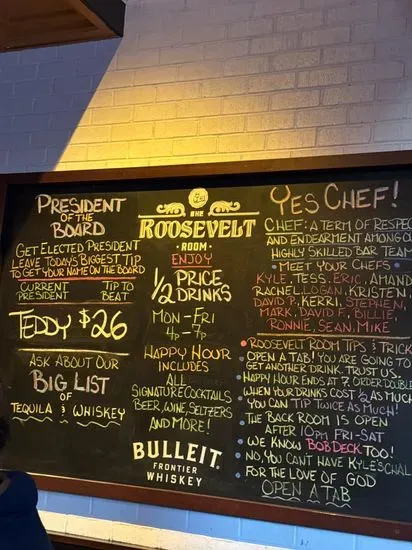 PRESIDENT
OF THE
BOARD
GET ELECTED PRESIDENT
LEAVE TODAY'S BIGGEST TIP
TO GET YOUR NAME ON THE BOARD
CURRENT PRESIDENT
TIP TO BEAT
TEDDY $26
ASK ABOUT OUR
BIG LIST
OF
TEQUILA & WHISKEY
THE
ROOSEVELT
ROOM
ENJOY
1/2 PRICE
DRINKS
MON-FRI
4P-7P
HAPPY HOUR
INCLUDES
ALL
SIGNATURE COCKTAILS
BEER, WINE, SELTZERS
AND MORE!
BULLEIT
FRONTIER
WHISKEY
YES CHEF!
CHEF: A TERM OF
AND ENDEARMENT AMONG
HIGHLY SKILLED BAR TEAM
• MEET YOUR CHEFS •
KYLE, TESS, ERIC,
RACHEL, LOGAN, KRISTEN,
DAVID P., KERRI, STEPHEN,
MARK, DAVID F., BILLIE,
RONNIE, SEAN, MIKE
• ROOSEVELT ROOM TIPS &
OPEN A TAB! YOU ARE GOING TO
GET ANOTHER DRINK. TRUST US.
• HAPPY HOUR ENDS AT 7, ORDER DOUBLE
WHEN YOUR DRINKS COST ½ AS MUCH
YOU CAN TIP TWICE AS MUCH!
• THE BACK ROOM IS OPEN
AFTER 10PM FRI-SAT
• WE KNOW BOB DECK TOO!
• NO, YOU CAN'T HAVE KYLE'S
• FOR THE LOVE OF GOD
OPEN A TAB